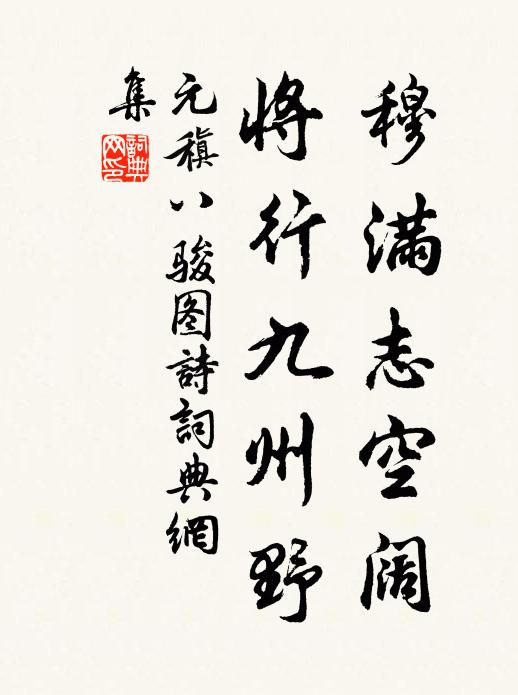 穆满志空阔
将行九州野
元稹八骏图詩詞典網
集
詞典网印